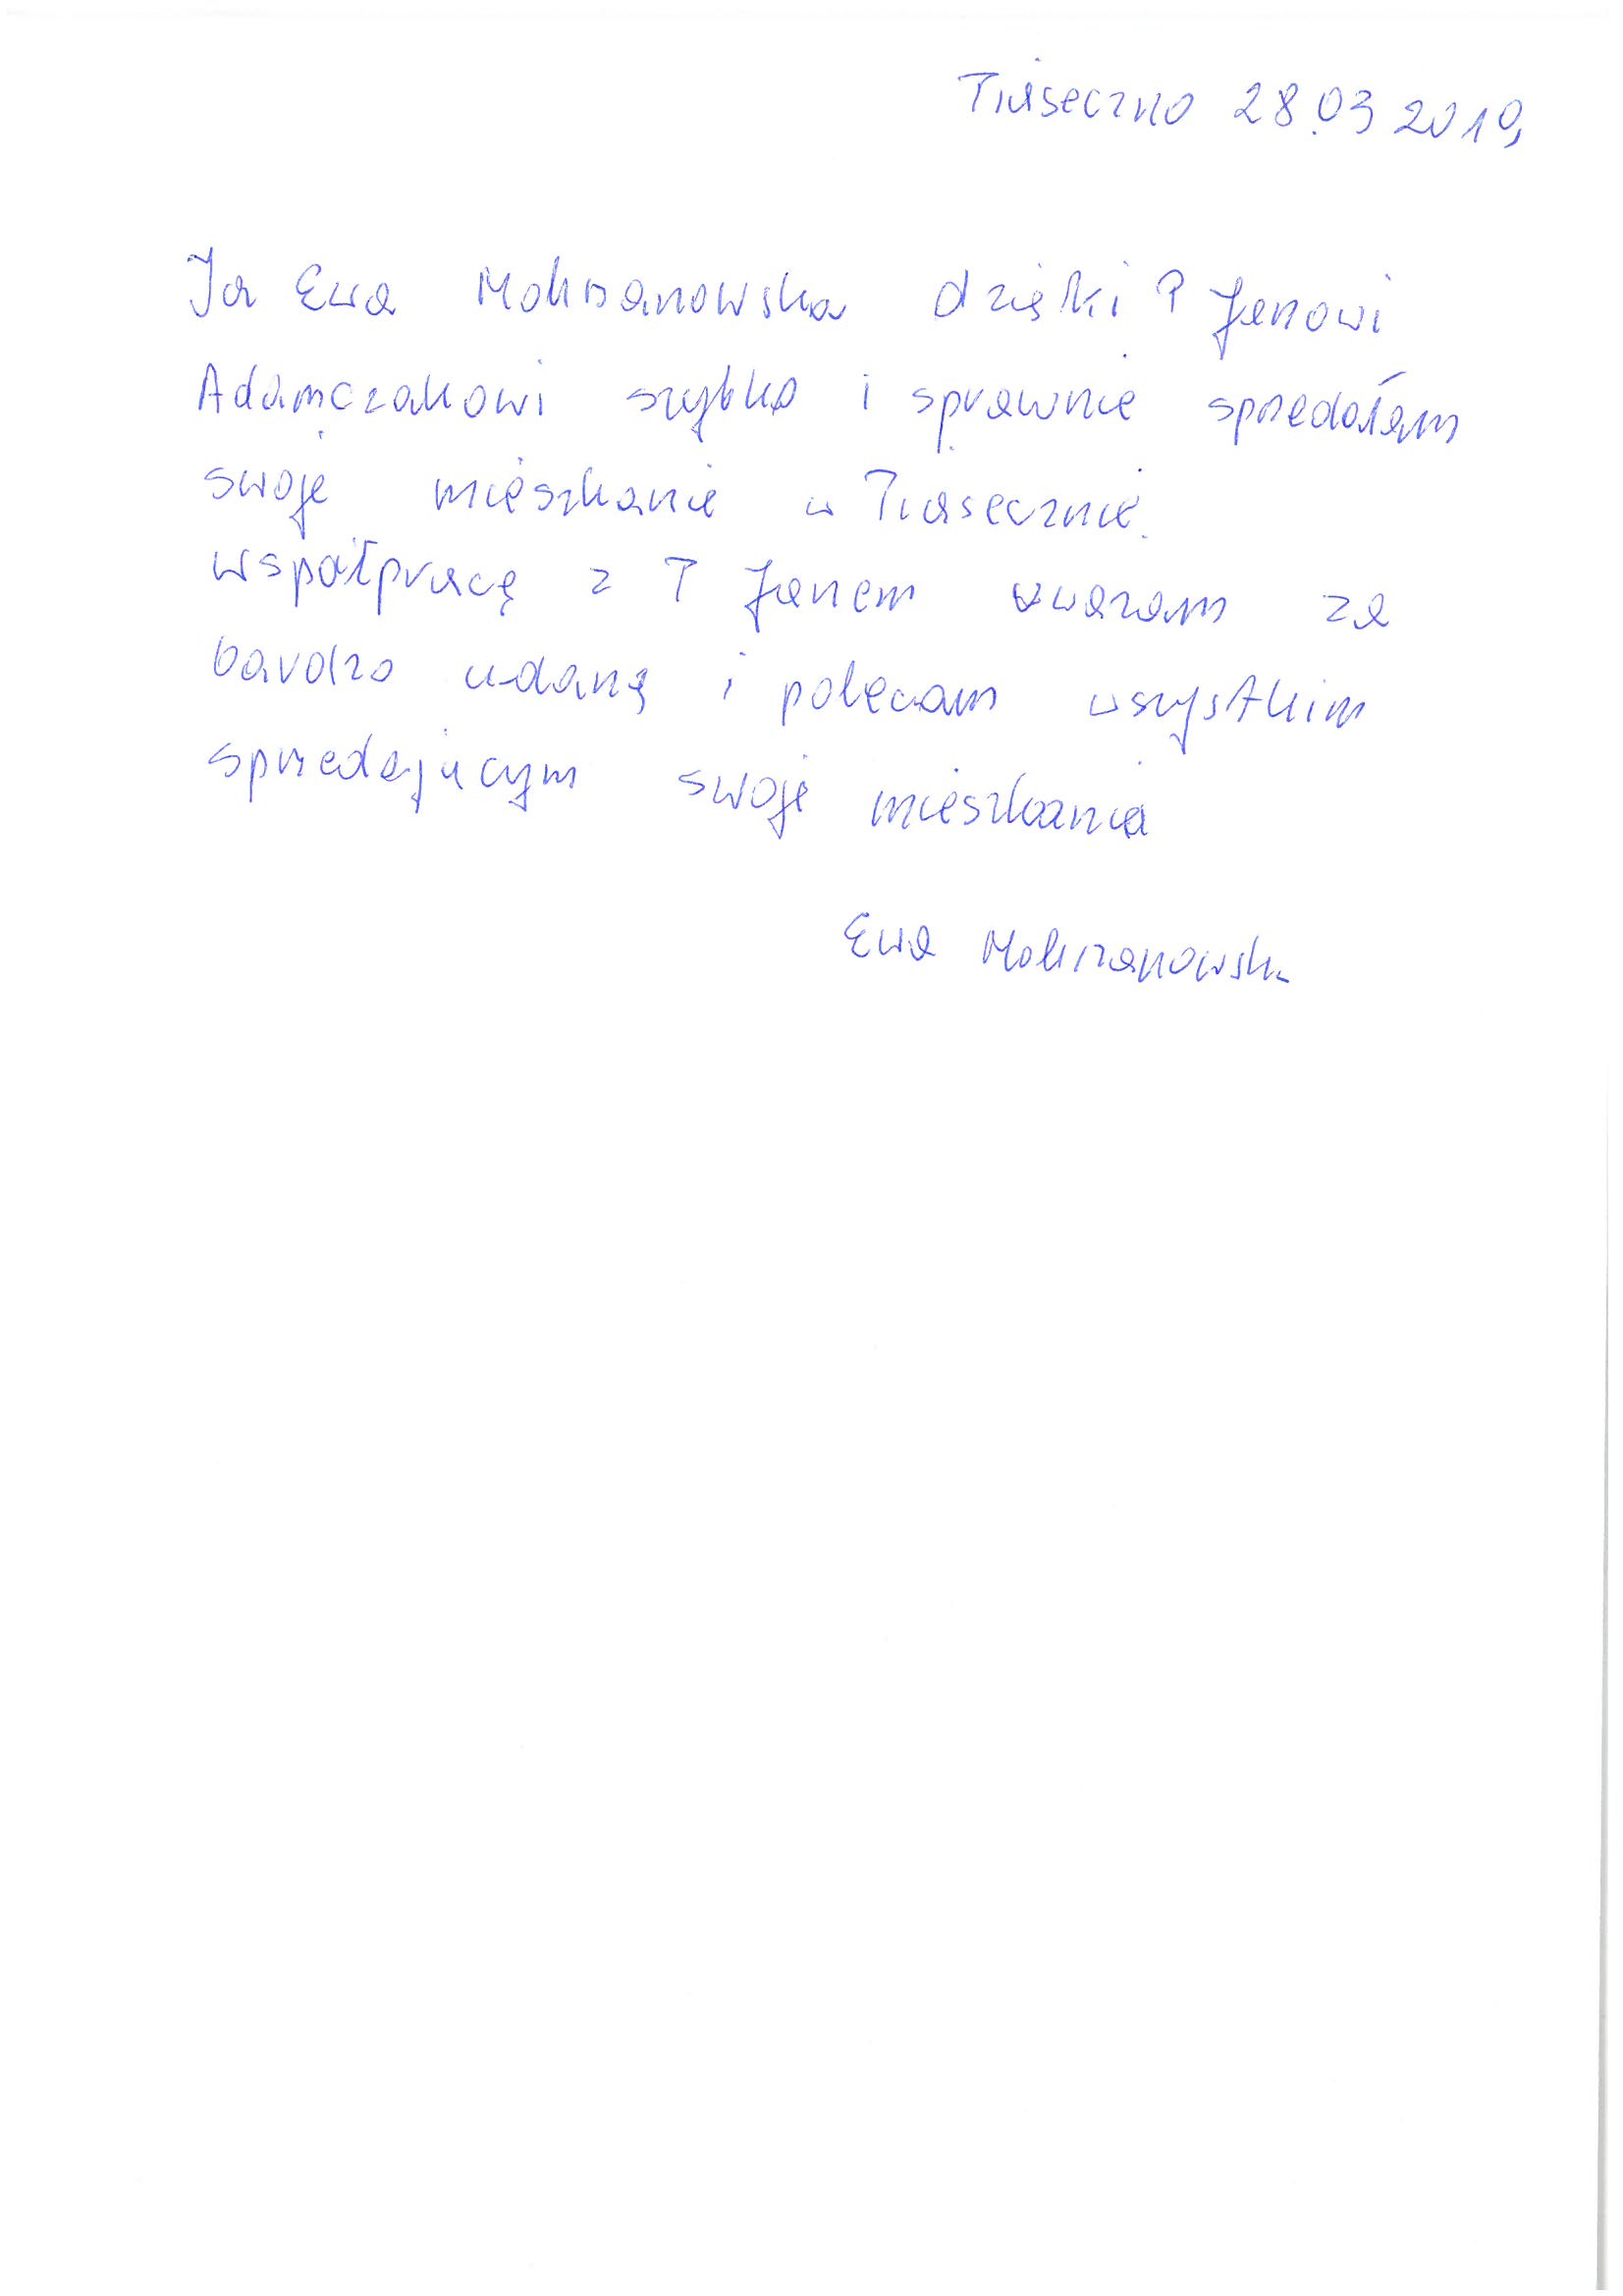 Piaseczno 28.03 2019,
Ja Ewa Mokrzanowska dzięki P Janowi
Adamczakowi szybko i sprawnie sprzedałam
swoje mieszkanie w Piasecznie.
współpracę z P Janem uważam za
bardzo udaną i polecam wszystkim
sprzedającym swoje mieszkania
Ewa Mokrzanowska